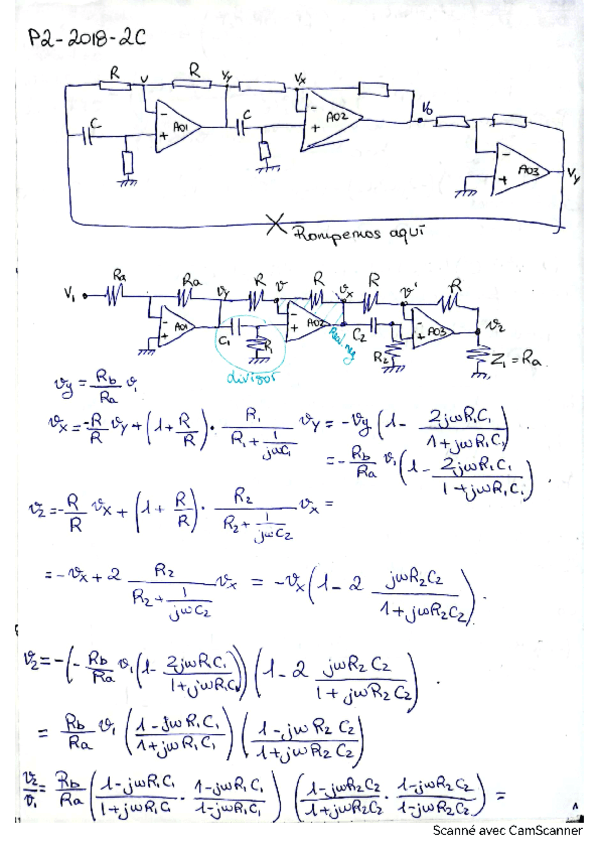 P2-2018-2C
R V R Vy Vx
C AO1 C AO2 Vo AO3 Vy
Rompemos aquí
V1 Ra Ra Vy R V R Vx R V' R
AO1 C1 R AO2 C2 R2 AO3 V2 Z1 = Ra
divisor
Vy = Rb/Ra V1
Vx = -R/R Vy + (1 + R/R) · R1/(R1 + 1/jωC1) Vy = -Vy (1 - 2jωR1C1/(1 + jωR1C1))
= -Rb/Ra V1 (1 - 2jωR1C1/(1 + jωR1C1)).
V2 = -R/R Vx + (1 + R/R) · R2/(R2 + 1/jωC2) Vx =
= -Vx + 2 R2/(R2 + 1/jωC2) Vx = -Vx (1 - 2 jωR2C2/(1 + jωR2C2)).
V2 = -(-Rb/Ra V1 (1 - 2jωR1C1/(1 + jωR1C1))) (1 - 2 jωR2C2/(1 + jωR2C2)).
= Rb/Ra V1 (1 - jωR1C1/1 + jωR1C1) (1 - jωR2C2/1 + jωR2C2)
V2/V1 = Rb/Ra (1 - jωR1C1/1 + jωR1C1 · 1 - jωR1C1/1 - jωR1C1) (1 - jωR2C2/1 + jωR2C2 · 1 - jωR2C2/1 - jωR2C2) =
Scanné avec CamScanner